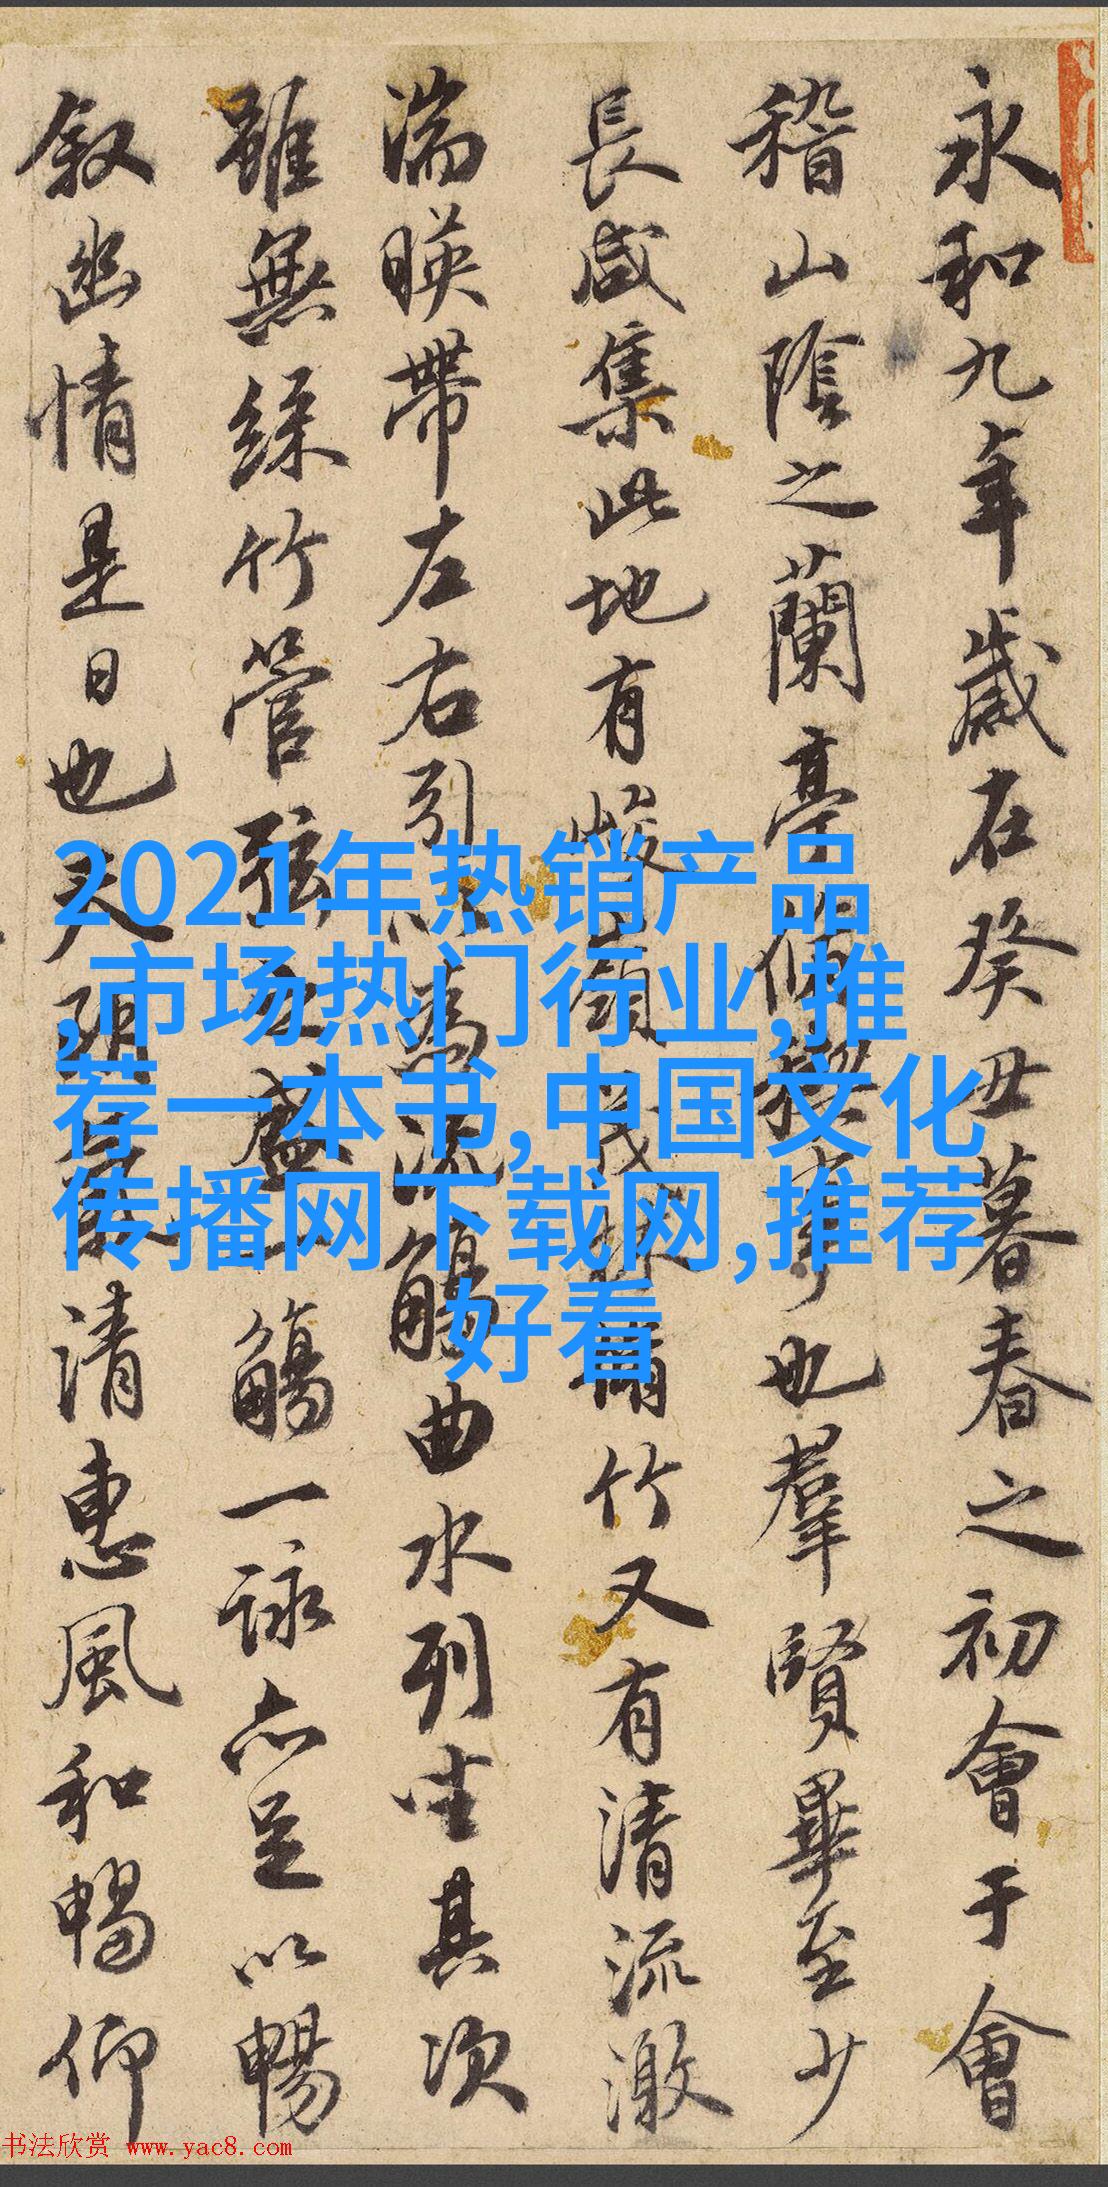 永和九年歲在癸丑暮春之初會于會
稽山陰之蘭亭脩稧事也羣賢畢至少
長咸集此地有峻領茂林脩竹又有清流激
湍暎帶左右引以為流觴曲水列坐其次
雖無絲竹管弦之盛一觴一詠亦足以暢
叙幽情是日也天朗氣清惠風和暢仰
2021年热销产品
,市场热门行业,推
荐一本书,中国文化
传播网下载网,推荐
好看
书法欣赏 www.yac8.com